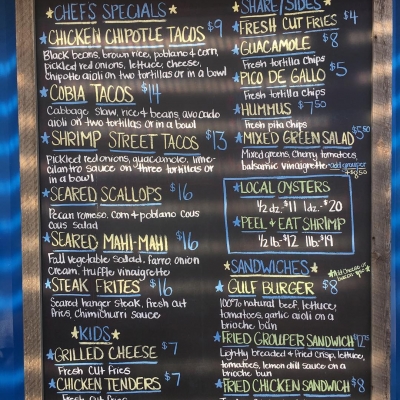 CHEF'S SPECIALS
CHICKEN CHIPOTLE TACOS $9
Black beans, brown rice, poblano & corn,
pickled red onions, lettuce, cheese,
chipotle aioli on two tortillas or in a bowl
COBIA TACOS $14
Cabbage slaw, rice & beans, avocado
aioli on two tortillas or in a bowl
SHRIMP STREET TACOS $13
Pickled red onions, guacamole, lime-
cilantro sauce on three tortillas or
in a bowl
SEARED SCALLOPS $16
Pecan romesco, corn & poblano cous
cous salad
SEARED MAHI-MAHI $16
Fall vegetable salad, farro, onion
cream, truffle vinaigrette
STEAK FRITES $16
Seared hanger steak, fresh cut
fries, chimichurri sauce
KIDS
GRILLED CHEESE $7
Fresh Cut Fries
CHICKEN TENDERS $7
Fresh Cut Fries
SHARE/SIDES
FRESH CUT FRIES $4
GUACAMOLE $8
Fresh tortilla chips
PICO DE GALLO $5
Fresh tortilla chips
HUMMUS $7.50
Fresh pita chips
MIXED GREEN SALAD $5.50
Mixed greens, cherry tomatoes,
balsamic vinaigrette -add grouper
LOCAL OYSTERS
1/2 dz. $11 1dz. $20
PEEL & EAT SHRIMP
1/2 lb. $12 1lb. $19
SANDWICHES
*Add Cheese or
bacon
GULF BURGER $8
100% natural beef, lettuce,
tomatoes, garlic aioli on a
brioche bun
FRIED GROUPER SANDWICH
Lightly breaded & fried crisp, lettuce,
tomatoes, lemon dill sauce on a
brioche bun
FRIED CHICKEN SANDWICH $8